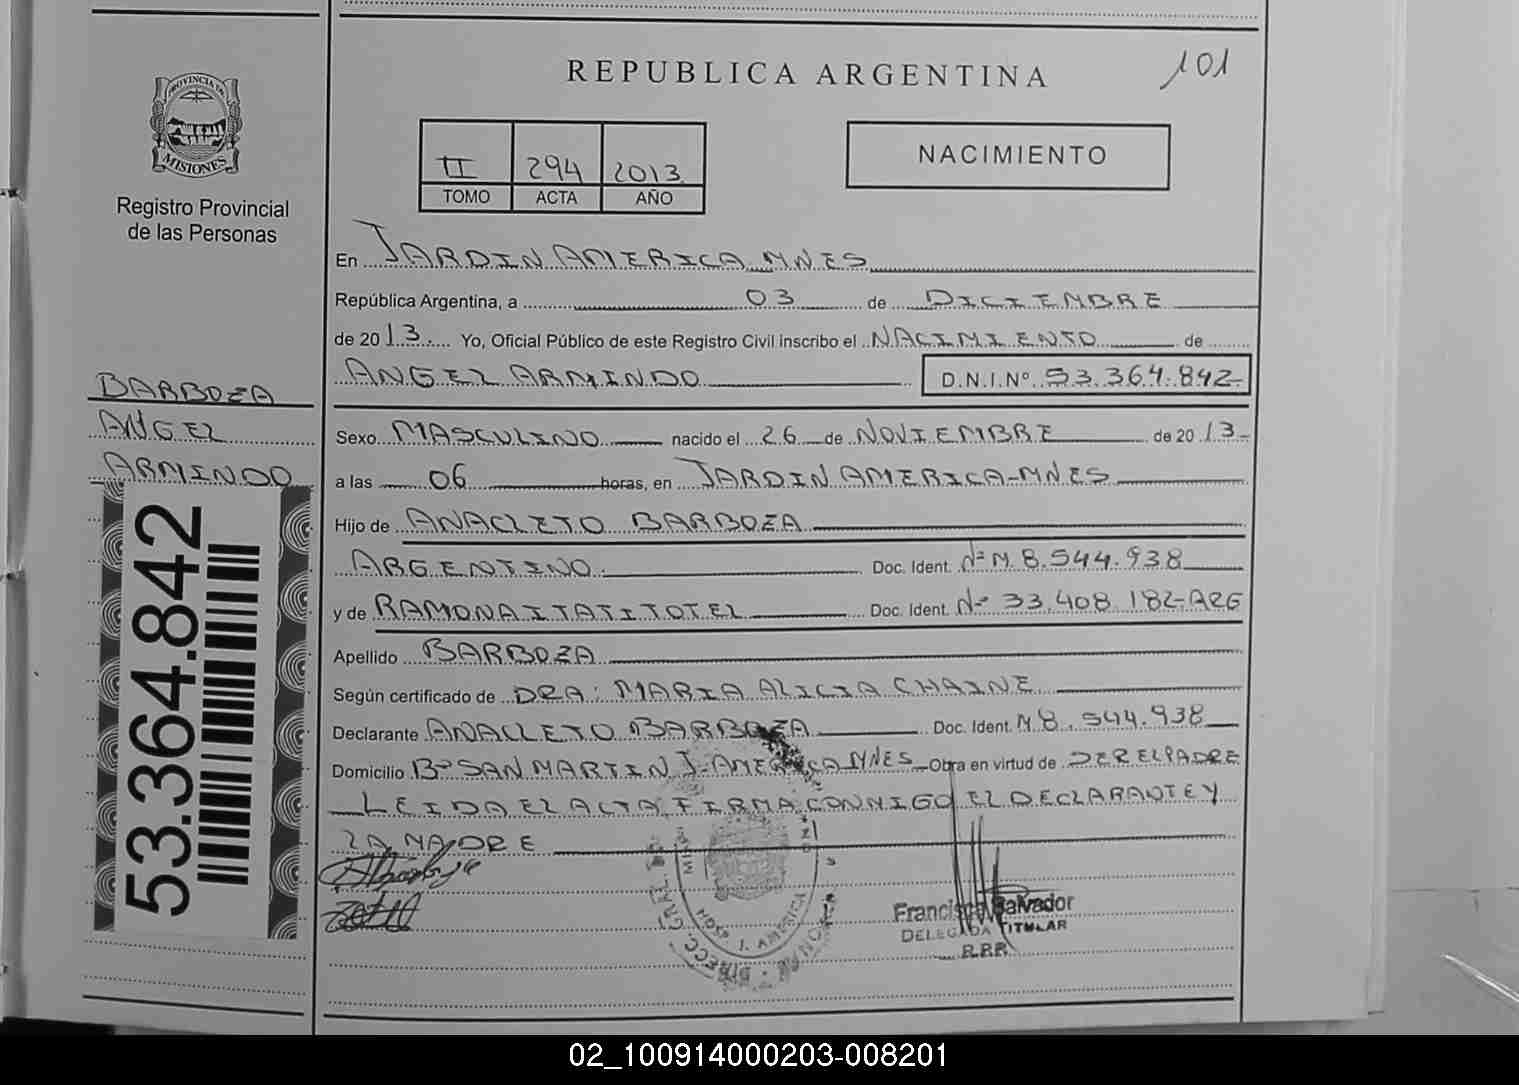 REPUBLICA ARGENTINA
101
PROVINCIA DE
MISIONES
Registro Provincial
de las Personas
II 294 2013
TOMO ACTA AÑO
NACIMIENTO
En JARDIN AMERICA MNES
República Argentina, a 03 de DICIEMBRE
de 2013. Yo, Oficial Público de este Registro Civil inscribo el NACIMIENTO de
ANGEL ARMINDO D.N.I.Nº 53.364.842-
BARBOZA
ANGEL
ARMINDO
53.364.842
Sexo MASCULINO nacido el 26 de NOVIEMBRE de 2013-
a las 06 horas, en JARDIN AMERICA-MNES
Hijo de ANACLETO BARBOZA
ARGENTINO. Doc. Ident. Nº M. 8.544.938
y de RAMONA ITATI TOTEL Doc. Ident. Nº 33.408.182-ARG
Apellido BARBOZA
Según certificado de DRA: MARIA ALICIA CHAINE
Declarante ANACLETO BARBOZA Doc. Ident. M 8.544.938
Domicilio Bº SAN MARTIN J. AMERICA MNES Obra en virtud de SER EL PADRE
LEIDA EL ACTA FIRMA CONMIGO EL DECLARANTE Y
LA MADRE
Francisco Salvador
DELEGADA TITULAR
R.P.P.
J. AMERICA
DIRECC. GRAL.
02_100914000203-008201